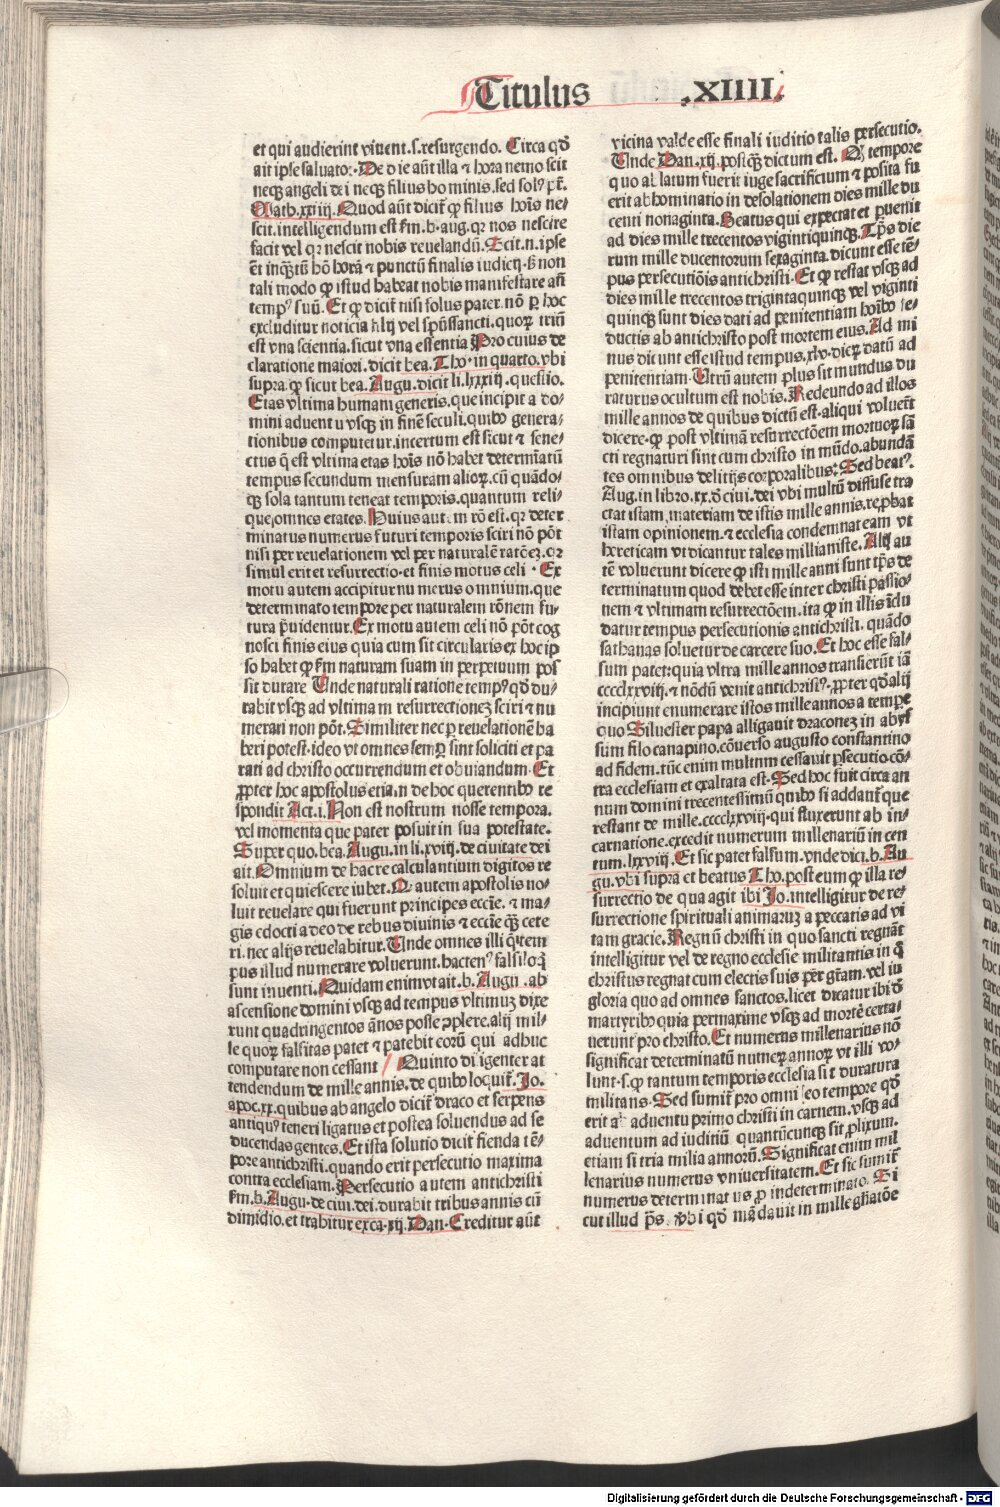 Titulus .XIIII.
et qui audierint viuent.s.resurgendo. Circa qd̄
ait ipse saluator. De die aūt illa ⁊ hora nemo scit
neqꝫ angeli dei neqꝫ filius hominis.sed solꝰ pr̄.
Math.xxiiij. Quod aūt dicit̄ ꝙ filius hoīs ne⸗
scit.intelligendum est fm.b.aug.qꝛ nos nescire
facit vel qꝛ nescit nobis reuelandū. Scit.n.ipse
ēt inqꝫtū hō horā ⁊ punctū finalis iudicij.sꝫ non
tali modo ꝙ istud habeat nobis manifestare asti
tempꝰ suū. Et ꝙ dicit nisi solus pater.nō ꝑ hoc
excluditur noticia filij vel spūssancti.quoꝝ triū
est vna scientia.sicut vna essentia Pro cuius de
claratione maiori.dicit bea. Tho.in quarto.vbi
supra.ꝙ sicut bea. Augu.dicit li.lxxxiij.questio.
Etas vltima humani generis.que incipit a do⸗
mini aduentu vsqꝫ in finē seculi.quibꝰ genera⸗
tionibus computetur.incertum est sicut ⁊ sene⸗
ctus q̄ est vltima etas hoīs nō habet determīatū
tempus secundum mensuram alioꝝ.cū quādo⸗
qꝫ sola tantum teneat temporis.quantum reli⸗
que omnes etates. Huius autem rō est.qꝛ deter
minatus numerus futuri temporis sciri nō pōt
nisi per reuelationem vel per naturalē ratōeꝫ.qꝛ
simul erit et resurrectio.et finis motus celi. Ex
motu autem accipitur numerus omnium.que
determinato tempore per naturalem rōnem fu⸗
tura p̄uidentur. Ex motu autem celi nō pōt cog
nosci finis eius quia cum sit circularis ex hoc ip
so habet ꝙ fm naturam suam in perpetuum pos
sit durare Unde naturali ratione tempꝰ qd̄ du⸗
rabit vsqꝫ ad vltimam resurrectioneꝫ sciri ⁊ nu
merari non pōt. Similiter nec ꝑ reuelationē ha
beri potest.ideo vt omnes semꝑ sint soliciti et pa
rati ad christo occurrendum et obuiandum. Et
ꝓpter hoc apostolus etiam de hoc querentibꝰ re
spondit Act.i. Non est nostrum nosse tempora.
vel momenta que pater posuit in sua potestate.
Super quo.bea. Augu.in li.xviij.de ciuitate dei
ait. Omnium de hac re calculantium digitos re
soluit et quiescere iubet. Qꝛ autem apostolis no⸗
luit reuelare qui fuerunt principes eccīe.⁊ ma⸗
gis edocti a deo de rebus diuinis ⁊ eccīe qꝫ cete
ri.nec alijs reuelabitur. Unde omnes illi q̇ tem
pus illud numerare voluerunt.hactenꝰ falsiloq̇
sunt inuenti. Quidam enim vt ait.b. Augu.ab
ascensione domini vsqꝫ ad tempus vltimuꝫ dixe
runt quadringentos ānos posse ꝯplere.alij mil⸗
le quoꝝ falsitas patet ⁊ patebit eorū qui adhuc
computare non cessant Quinto diligenter at
tendendum de mille annis.de quibꝰ loquit̄. Jo.
apoc.xx.quibus ab angelo dicit̄ draco et serpens
antiquꝰ teneri ligatus et postea soluendus ad se
ducendas gentes. Et ista solutio dicit̄ fienda tē⸗
pore antichristi.quando erit persecutio maxima
contra ecclesiam. Persecutio autem antichristi
fm.b. Augu.de ciui.dei.durabit tribus annis cū
dimidio.et trahitur ex ca.xij. Dan. Creditur aūt
vicina valde esse finali iuditio talis persecutio.
Unde Dan.xij.postqꝫ dictum est. A tempore
quo ablatum fuerit iuge sacrificium ⁊ posita fu
erit abhominatio in desolationem dies mille du
centi nonaginta. Beatus qui expectat et puenit
ad dies mille trecentos vigintiquinqꝫ. Tp̄s die
rum mille ducentorum sexaginta.dicunt esse tē⸗
pus persecutiōis antichristi. Et ꝙ restat vsqꝫ ad
dies mille trecentos trigintaquinqꝫ vel viginti
quinqꝫ sunt dies dati ad penitentiam hoībꝰ se⸗
ductis ab antichristo post mortem eius. Ad mi
nus dicunt esse istud tempus.xlv.dieꝝ datū ad
penitentiam. Utrū autem plus sit mundus du
raturus ocultum est nobis. Redeundo ad illos
mille annos de quibus dictū est.aliqui voluerūt
dicere.ꝙ post vltimā resurrectōem mortuoꝝ sā
cti regnaturi sint cum christo in mūdo.abundā
tes omnibus delitijs corporalibus. Sed beatꝰ.
Aug.in libro.xx.d̄ ciui.dei vbi multū diffuse tra
ctat istam materiam de istis mille annis.reꝓbat
istam opinionem.⁊ ecclesia condemnat eam vt
hereticam vt dicantur tales millianiste. Alij au
tē voluerunt dicere ꝙ isti mille anni sunt tp̄s de
terminatum quod debet esse inter christi passio⸗
nem ⁊ vltimam resurrectōem.ita ꝙ in illis īclu
datur tempus persecutionis antichristi.quādo
sathanas soluetur de carcere suo. Et hoc esse fal⸗
sum patet:quia vltra mille annos transierūt iā
cccclxxviij.⁊ nōdū venit antichristꝰ.ꝓpter qd̄ alij
incipiunt enumerare istos mille annos a tempe
quo Siluester papa alligauit draconeꝫ in abys
sum filo canapino.cōuerso augusto constantino
ad fidem.tūc enim multum cessauit ꝑsecutio cō⸗
tra ecclesiam et exaltata est. Sed hoc fuit circa an
num domini trecentessimū quibꝰ si addant̄ que
restant de mille.cccclxxviij.qui fluxerunt ab in⸗
carnatione.excedit numerum millenariū in cen
tum.lxxviij. Et sic patet falsum.vnde dici.b. Au
gu.vbi supra et beatus Tho.post eum ꝙ illa re⸗
surrectio de qua agit ibi Jo.intelligitur de re⸗
surrectione spirituali animaruꝫ a peccatis ad vi
tam gracie. Regnū christi in quo sancti regnāt
intelligitur vel de regno ecclesie militantis in q̄
christus regnat cum electis suis per grām.vel in
gloria quo ad omnes sanctos.licet dicatur ibi d̄
martyribꝰ quia permaxime vsqꝫ ad mortē certa⸗
uerunt pro christo. Et numerus millenarius nō
significat determinatū numeꝝ annoꝝ vt illi vo⸗
lunt.s.ꝙ tantum temporis ecclesia sit duratura
militans. Sed sumit̄ pro omni eo tempore qd̄
erit ab aduentu primo christi in carnem.vsqꝫ ad
aduentum ad iuditiū quantūcunqꝫ sit ꝓlixum.
etiam si tria milia annorū. Significat enim mil
lenarius numerus vniuersitatem. Et sic sumit̄
numerus determinatus ꝓ indeterminato. Si
cut illud ps̄. vbi qd̄ mādauit in mille gn̄atōe
Digitalisierung gefördert durch die Deutsche Forschungsgemeinschaft - DFG